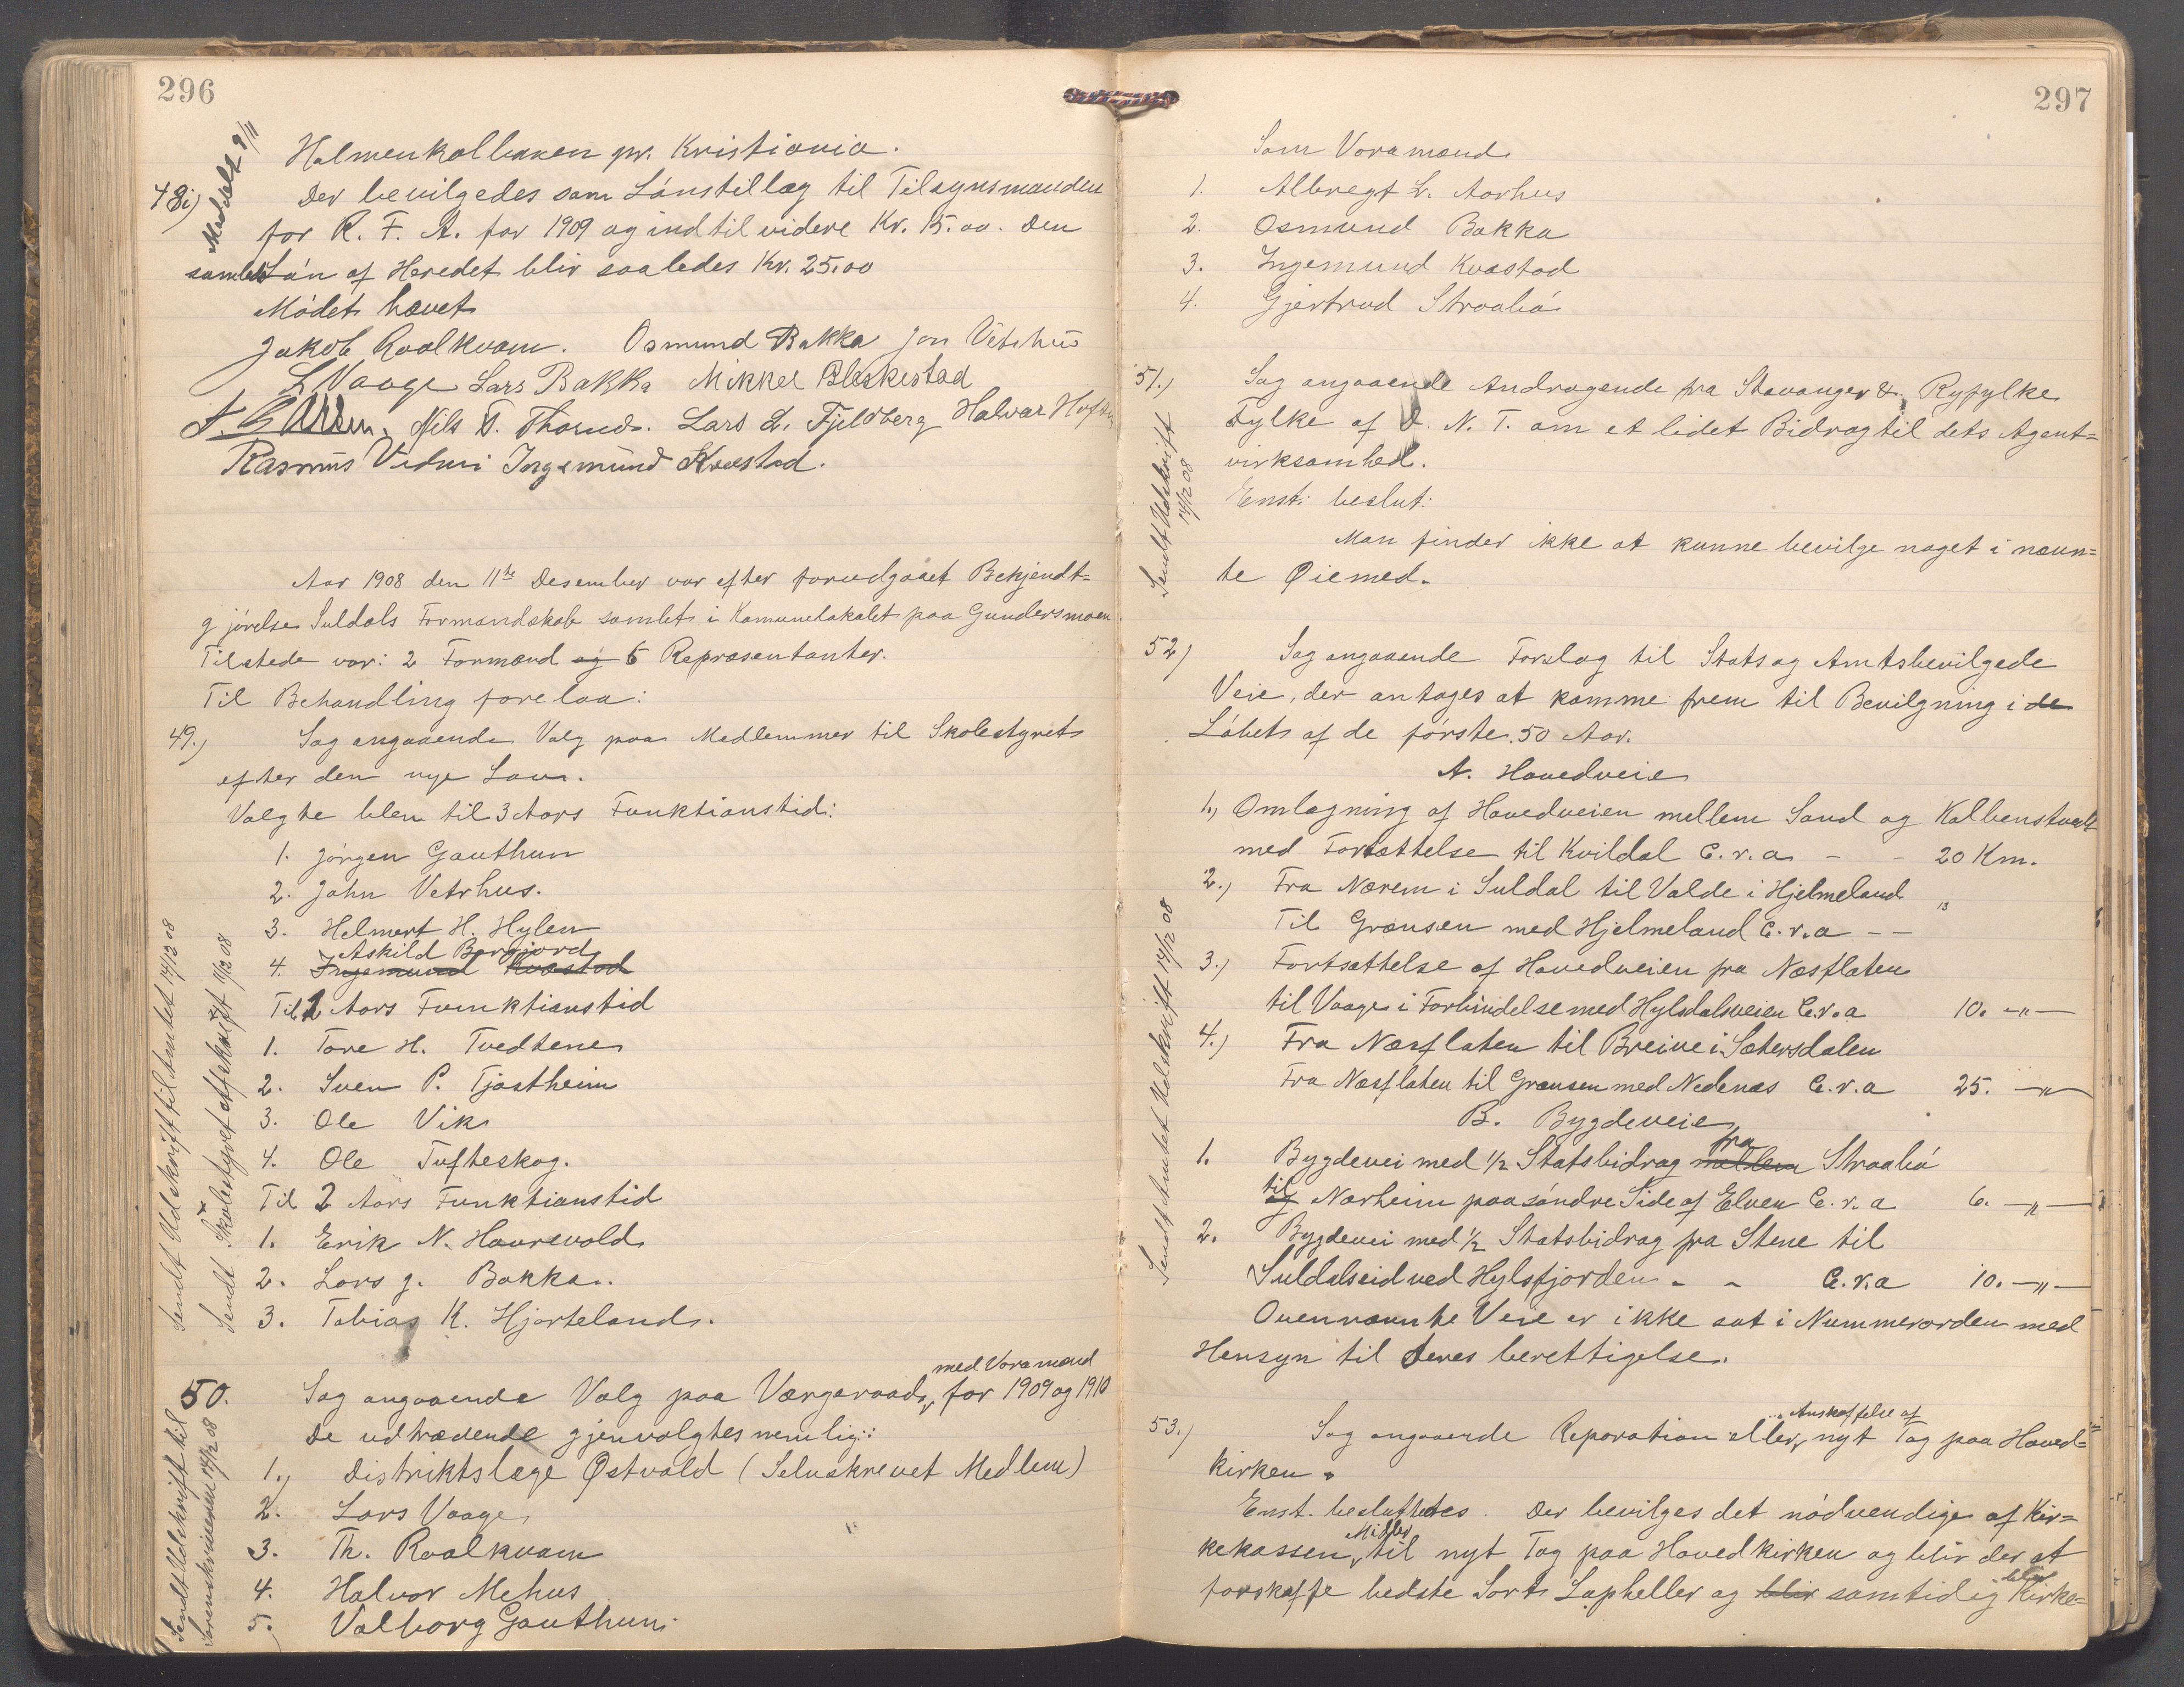 296
Holmenkolbanen pr. Kristiania.
Meddelt 9/11
48i) Der bevilgedes som Lónstillæg til Tilsynsmanden
for R. F. A. for 1909 og indtil videre Kr. 15.00. Den
samlede Lón af Heredet blir saaledes Kr. 25.00
Módet hævet
Jakob Roalkvam. Osmund Bakka Jon Vetrhus
L Vaage Lars Bakka Mikkel Bleskestad
Nils T. Thorud. Lars L. Fjeldberg Halvar
Rasmus Vedmi Ingemund Kvæstad.
Aar 1908 den 11te Desember var efter forudgaaet Bekjendt=
gjórelse Suldals Formandskab samlet i Komunelokalet paa Gundersmoen
Tilstede var: 2 Formænd og 5 Repræsentanter.
Til Behandling forelaa:
49.) Sag angaaende Valg paa Medlemmer til Skolestyret
efter den nye Lov.
Valgte blev til 3 Aars Funktionstid:
1. Jórgen Gauthun
2. John Vetrhus.
3. Helmert H. Hylen
Askild Bergjord
4. Ingemund Kvæstad
Til 1 Aars Funktionstid
1. Tore H. Tvedtene
2. Sven P. Tjøstheim
3. Ole Vik
4. Ole Tufteskog.
Til 2 Aars Funktionstid
1. Erik N. Haurevold
2. Lars J. Bakka.
3. Tobias K. Hjorteland.
Sendt Udskrift til Amtet 14/12 08
Sendt Skolestyret Afskrift 11/12 08
med Varamænd
50. Sag angaaende Valg paa Værgeraad, for 1909 og 1910
De udtrædende gjenvalgtes nemlig:
1.) Distriktslæge Østvold (Selvskrevet Medlem)
2. Lars Vaage,
3. Th. Roalkvam
4. Halvor Mehus
5. Valborg Gauthun.
Sendt Udskrift til
Sorenskriveren 14/12 08
297
Som Varamænd
1. Albregt L. Aarhus
2. Osmund Bakka
3. Ingemund Kvæstad
4. Gjertrud Straabó
51.) Sag angaaende Andragende fra Stavanger & Ryfylke
Fylke af D. N. T. om et lidet Bidrag til dets Agent=
virksomhed.
Enst. beslut:
Man finder ikke at kunne bevilge noget i nævn=
te Øiemed.
Sendt Udskrift
14/12 08
52) Sag angaaende Forslag til Stats og Amtsbevilgede
Veie, der antages at komme frem til Bevilgning i de
Lóbet af de fórste 50 Aar.
A. Hovedveie
1.) Omlægning af Hovedveien mellem Sand og Kolbenstvedt
med Fortsættelse til Kvildal C.r.a - - 20 Km.
2.) Fra Nærem i Suldal til Valde i Hjelmeland
Til Grænsen med Hjelmeland C.r.a - - 13
3.) Fortsættelse af Hovedveien fra Næsflaten
til Vaage i Forbindelse med Hylsdalsveien C.r.a 10. -"-
4.) Fra Næsflaten til Breive i Sætersdalen
Fra Næsflaten til Grænsen med Nedenæs C.r.a 25. -"-
B. Bygdeveie
1. Bygdevei med 1/2 Statsbidrag mellem fra Straabó
og til Nærheim paa sóndre Side af Elven C.r.a 6. -"-
2. Bygdevei med 1/2 Statsbidrag fra Stene til
Suldalseid ved Hylsfjorden - - C.r.a 10. -"-
Ovennævnte Veie er ikke sat i Nummerorden med
Hensyn til deres berettigelse.
Sendt Amtet Udskrift 14/12 08
Anskaffelse af
53.) Sag angaaende Reparation eller nyt Tag paa Hoved=
kirken.
Enst. besluttedes. Der bevilges det nódvendige af Kir=
kekassen, Midler til nyt Tag paa Hovedkirken og blir der at
forskaffe bedste Sort Lapheller og blir samtidig blir Kirke=